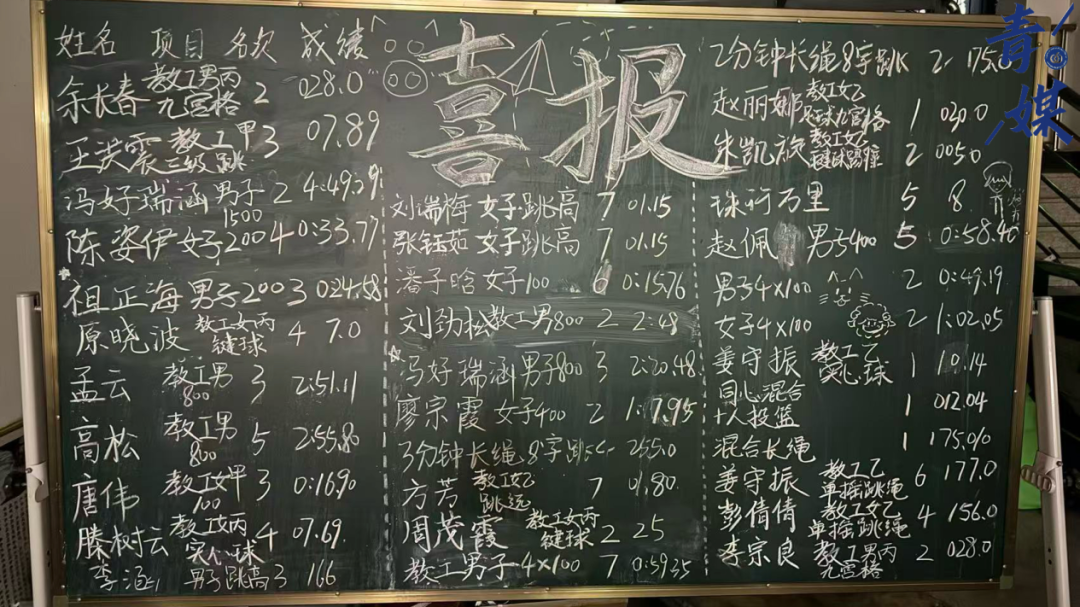 喜报
姓名 项目 名次 成绩
余长春 教工男丙 九宫格 2 028.0
王芙震 教工甲 三级跳 3 07.89
冯好瑞涵 男子1500 2 4:49.29
陈姿伊 女子200 4 0:33.77
祖正海 男子200 3 024.48
原晓波 教工女丙 键球 4 7.0
孟云 教工男800 3 2:51.11
高松 教工男800 5 2:55.80
唐伟 教工女甲100 3 0:16.90
滕树云 教工女丙 实心球 4 07.69
李涵 男子跳高 3 166
刘端梅 女子跳高 7 01.15
张钰茹 女子跳高 7 01.15
子晗 女子100 6 0:15.76
刘劲松 教工男800 2 2:48
冯好瑞涵 男子800 3 2:20.48
廖宗霞 女子400 2 1:17.95
3分钟长绳8字跳 255.0
方芳 教工女乙 跳远 7 01.80
周茂霞 教工女丙 键球 2 25
教工男子4×100 7 0:59.35
2分钟长绳8字跳 2 175.0
赵丽娜 教工女乙 足球九宫格 1 030.0
朱凯旋 教工女乙 键球踢准 2 0050
珠行万里 5 8
赵佩 男子400 5 0:58.40
男子4×100 2 0:49.19
女子4×100 2 1:02.05
姜守振 教工乙 实心球 1 10.14
同心混合 十人投篮 1 012.04
混合长绳 1 175.0/0
姜守振 教工乙 单摇跳绳 6 177.0
彭倩倩 教工女乙 单摇跳绳 4 156.0
李宗良 教工男丙 九宫格 2 028.0
青媒